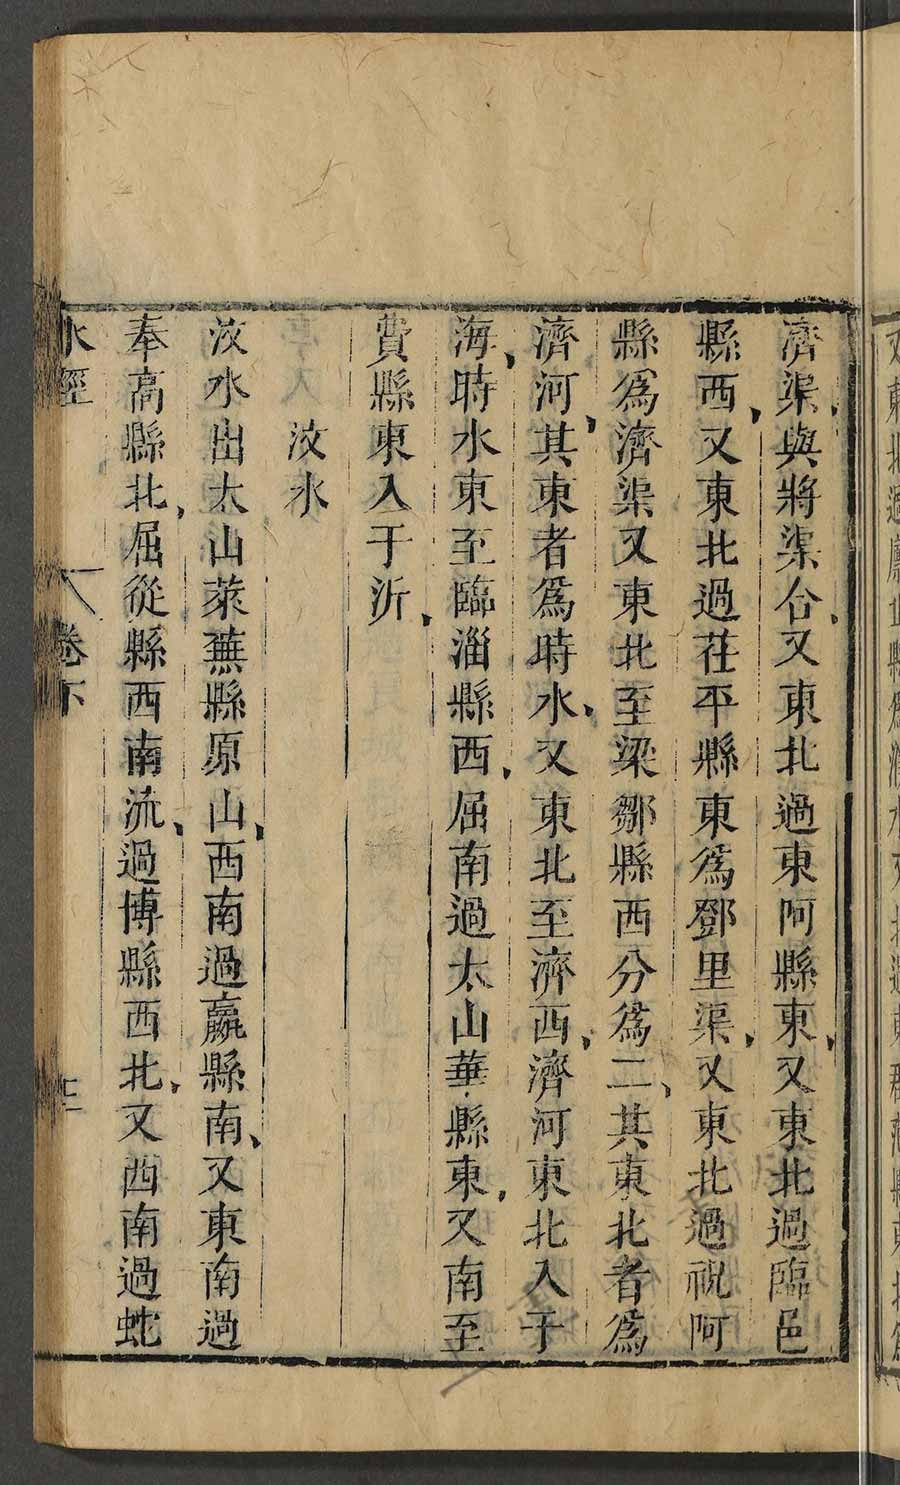 濟渠、與將渠合、又東北過東阿縣東、又東北過臨邑
縣西、又東北過茌平縣東爲鄧里渠、又東北過祝阿
縣爲濟渠又東北至梁鄒縣西分爲二、其東北者爲
濟河、其東者爲時水、又東北至濟西、濟河東北入于
海、時水東至臨淄縣西、屈南過太山華縣東、又南至
費縣東入于沂、
汶水
汶水出太山萊蕪縣原山、西南過嬴縣南、又東南過
奉高縣北、屈從縣西南流、過博縣西北、又西南過蛇
水經 卷下